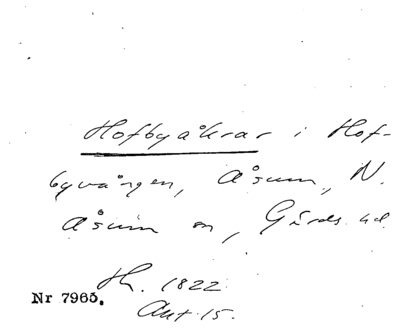 Hofbyåkrar i Hof-
byvången, Åsum, N.
Åsum sn, Gärds hd.
Hh. 1822
Akt 15.
Nr 7965.